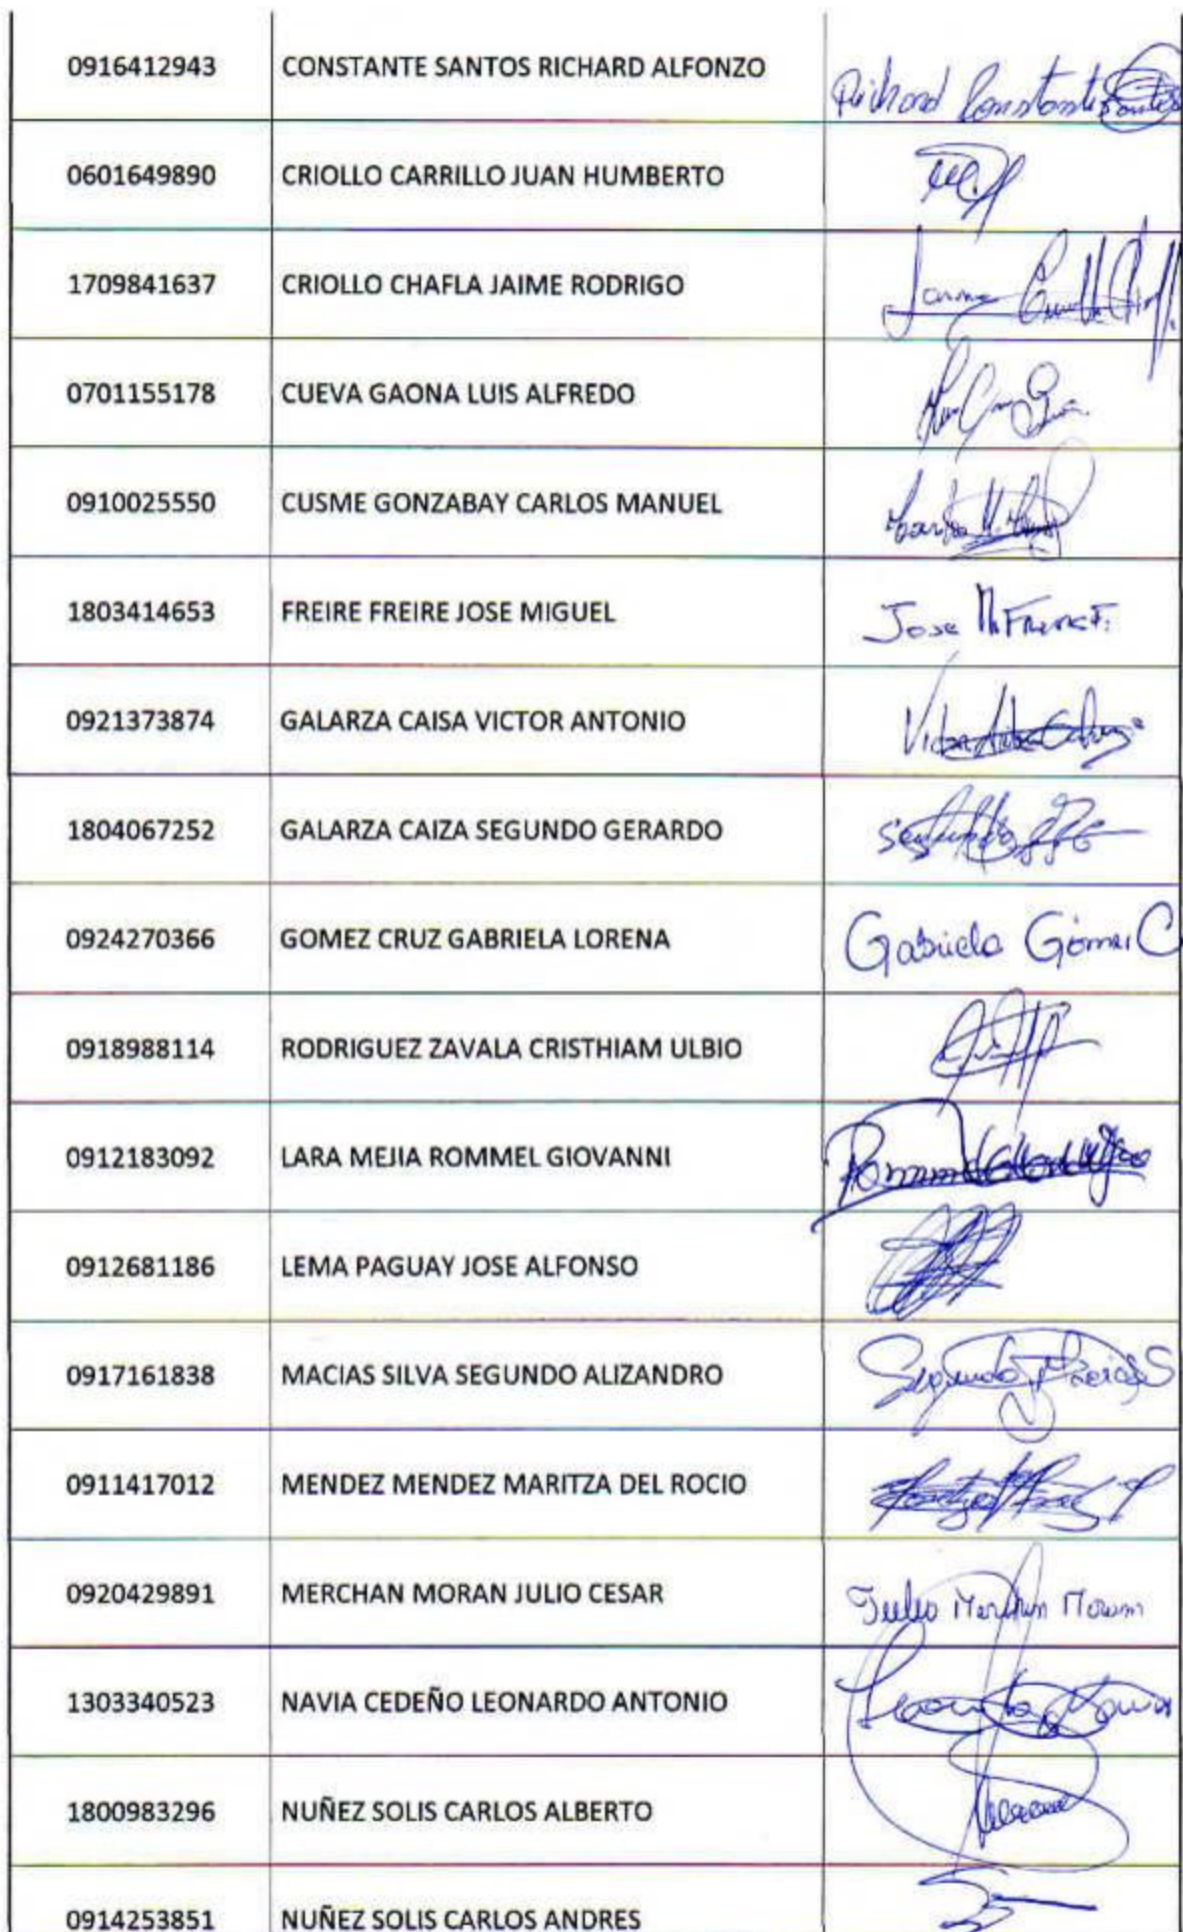 0916412943 CONSTANTE SANTOS RICHARD ALFONZO Richard Constante Santos
0601649890 CRIOLLO CARRILLO JUAN HUMBERTO
1709841637 CRIOLLO CHAFLA JAIME RODRIGO
0701155178 CUEVA GAONA LUIS ALFREDO
0910025550 CUSME GONZABAY CARLOS MANUEL
1803414653 FREIRE FREIRE JOSE MIGUEL Jose M. Freire F.
0921373874 GALARZA CAISA VICTOR ANTONIO Victor
1804067252 GALARZA CAIZA SEGUNDO GERARDO Segundo
0924270366 GOMEZ CRUZ GABRIELA LORENA Gabriela Gómez C
0918988114 RODRIGUEZ ZAVALA CRISTHIAM ULBIO
0912183092 LARA MEJIA ROMMEL GIOVANNI
0912681186 LEMA PAGUAY JOSE ALFONSO
0917161838 MACIAS SILVA SEGUNDO ALIZANDRO Segundo Macias S
0911417012 MENDEZ MENDEZ MARITZA DEL ROCIO
0920429891 MERCHAN MORAN JULIO CESAR Julio Merchan Moran
1303340523 NAVIA CEDEÑO LEONARDO ANTONIO Leonardo Navia
1800983296 NUÑEZ SOLIS CARLOS ALBERTO
0914253851 NUÑEZ SOLIS CARLOS ANDRES